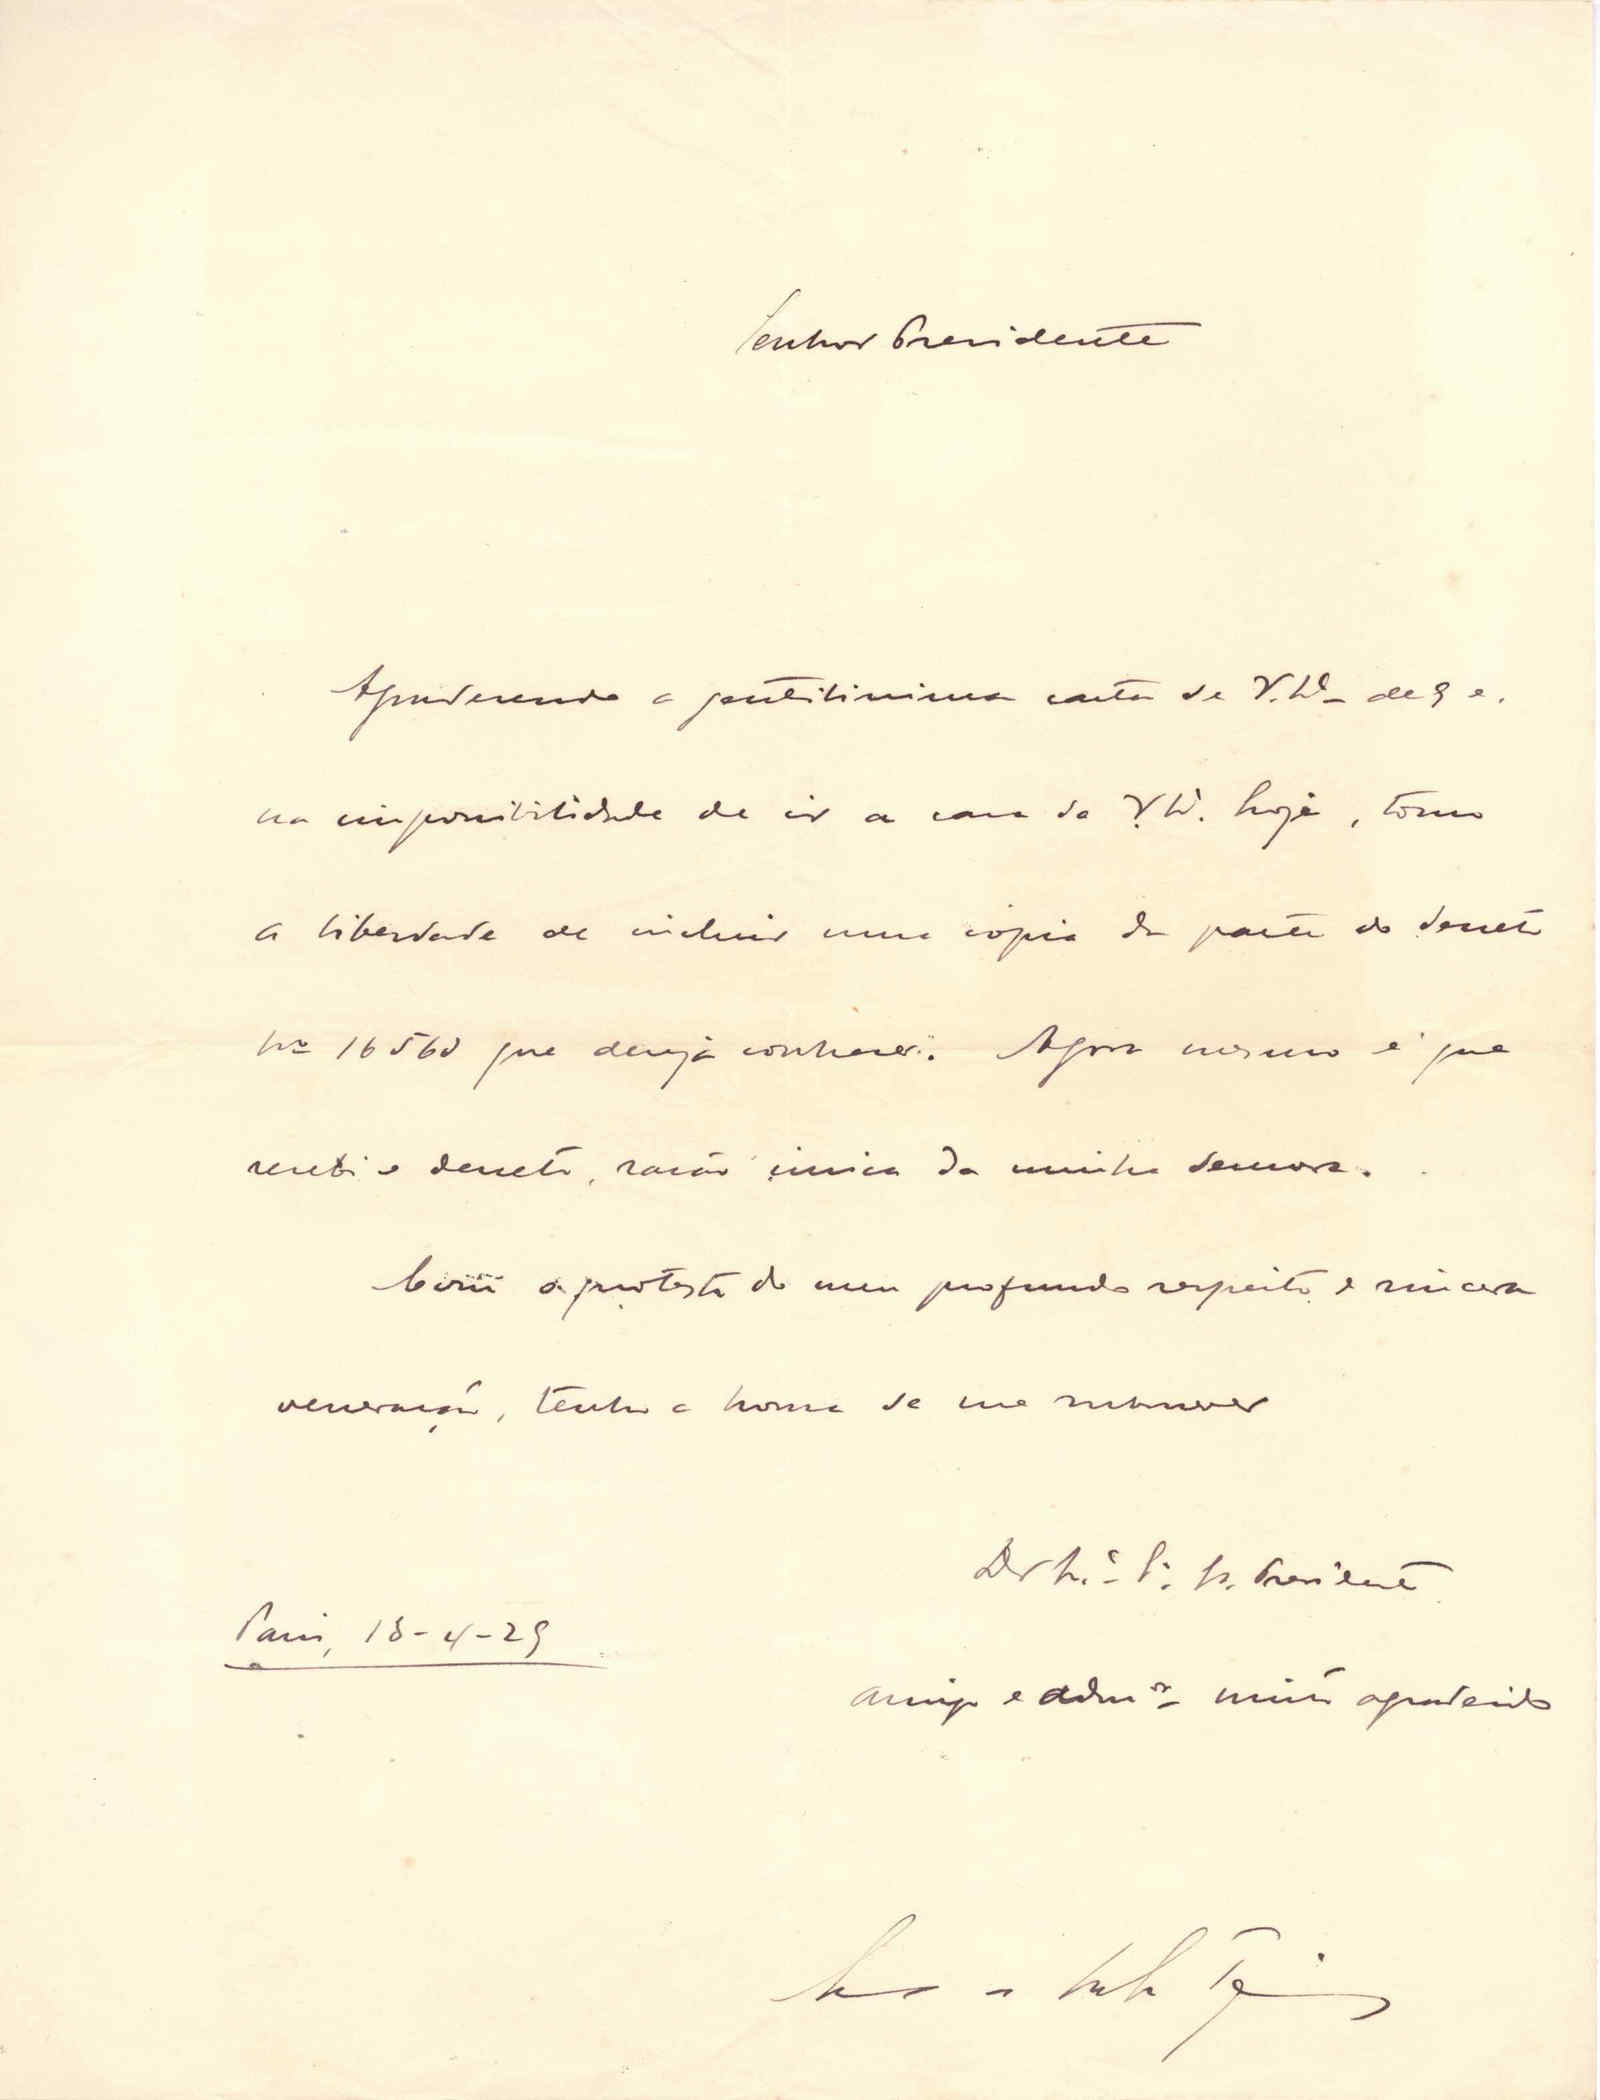 Senhor Presidente
Agradecendo a gentilissima carta de V. de 9 e,
na impossibilidade de ir a casa de V. hoje, tomo
a liberdade de incluir uma cópia da parte do decreto
Nº 16563 que deseja conhecer. Agora mesmo é que
recebi o decreto, razão única da minha demora.
Com o protesto do meu profundo respeito e sincera
veneração, tenho a honra de me subscrever
De Presidente
Paris, 18-4-29
amigo e admor muito agradecido